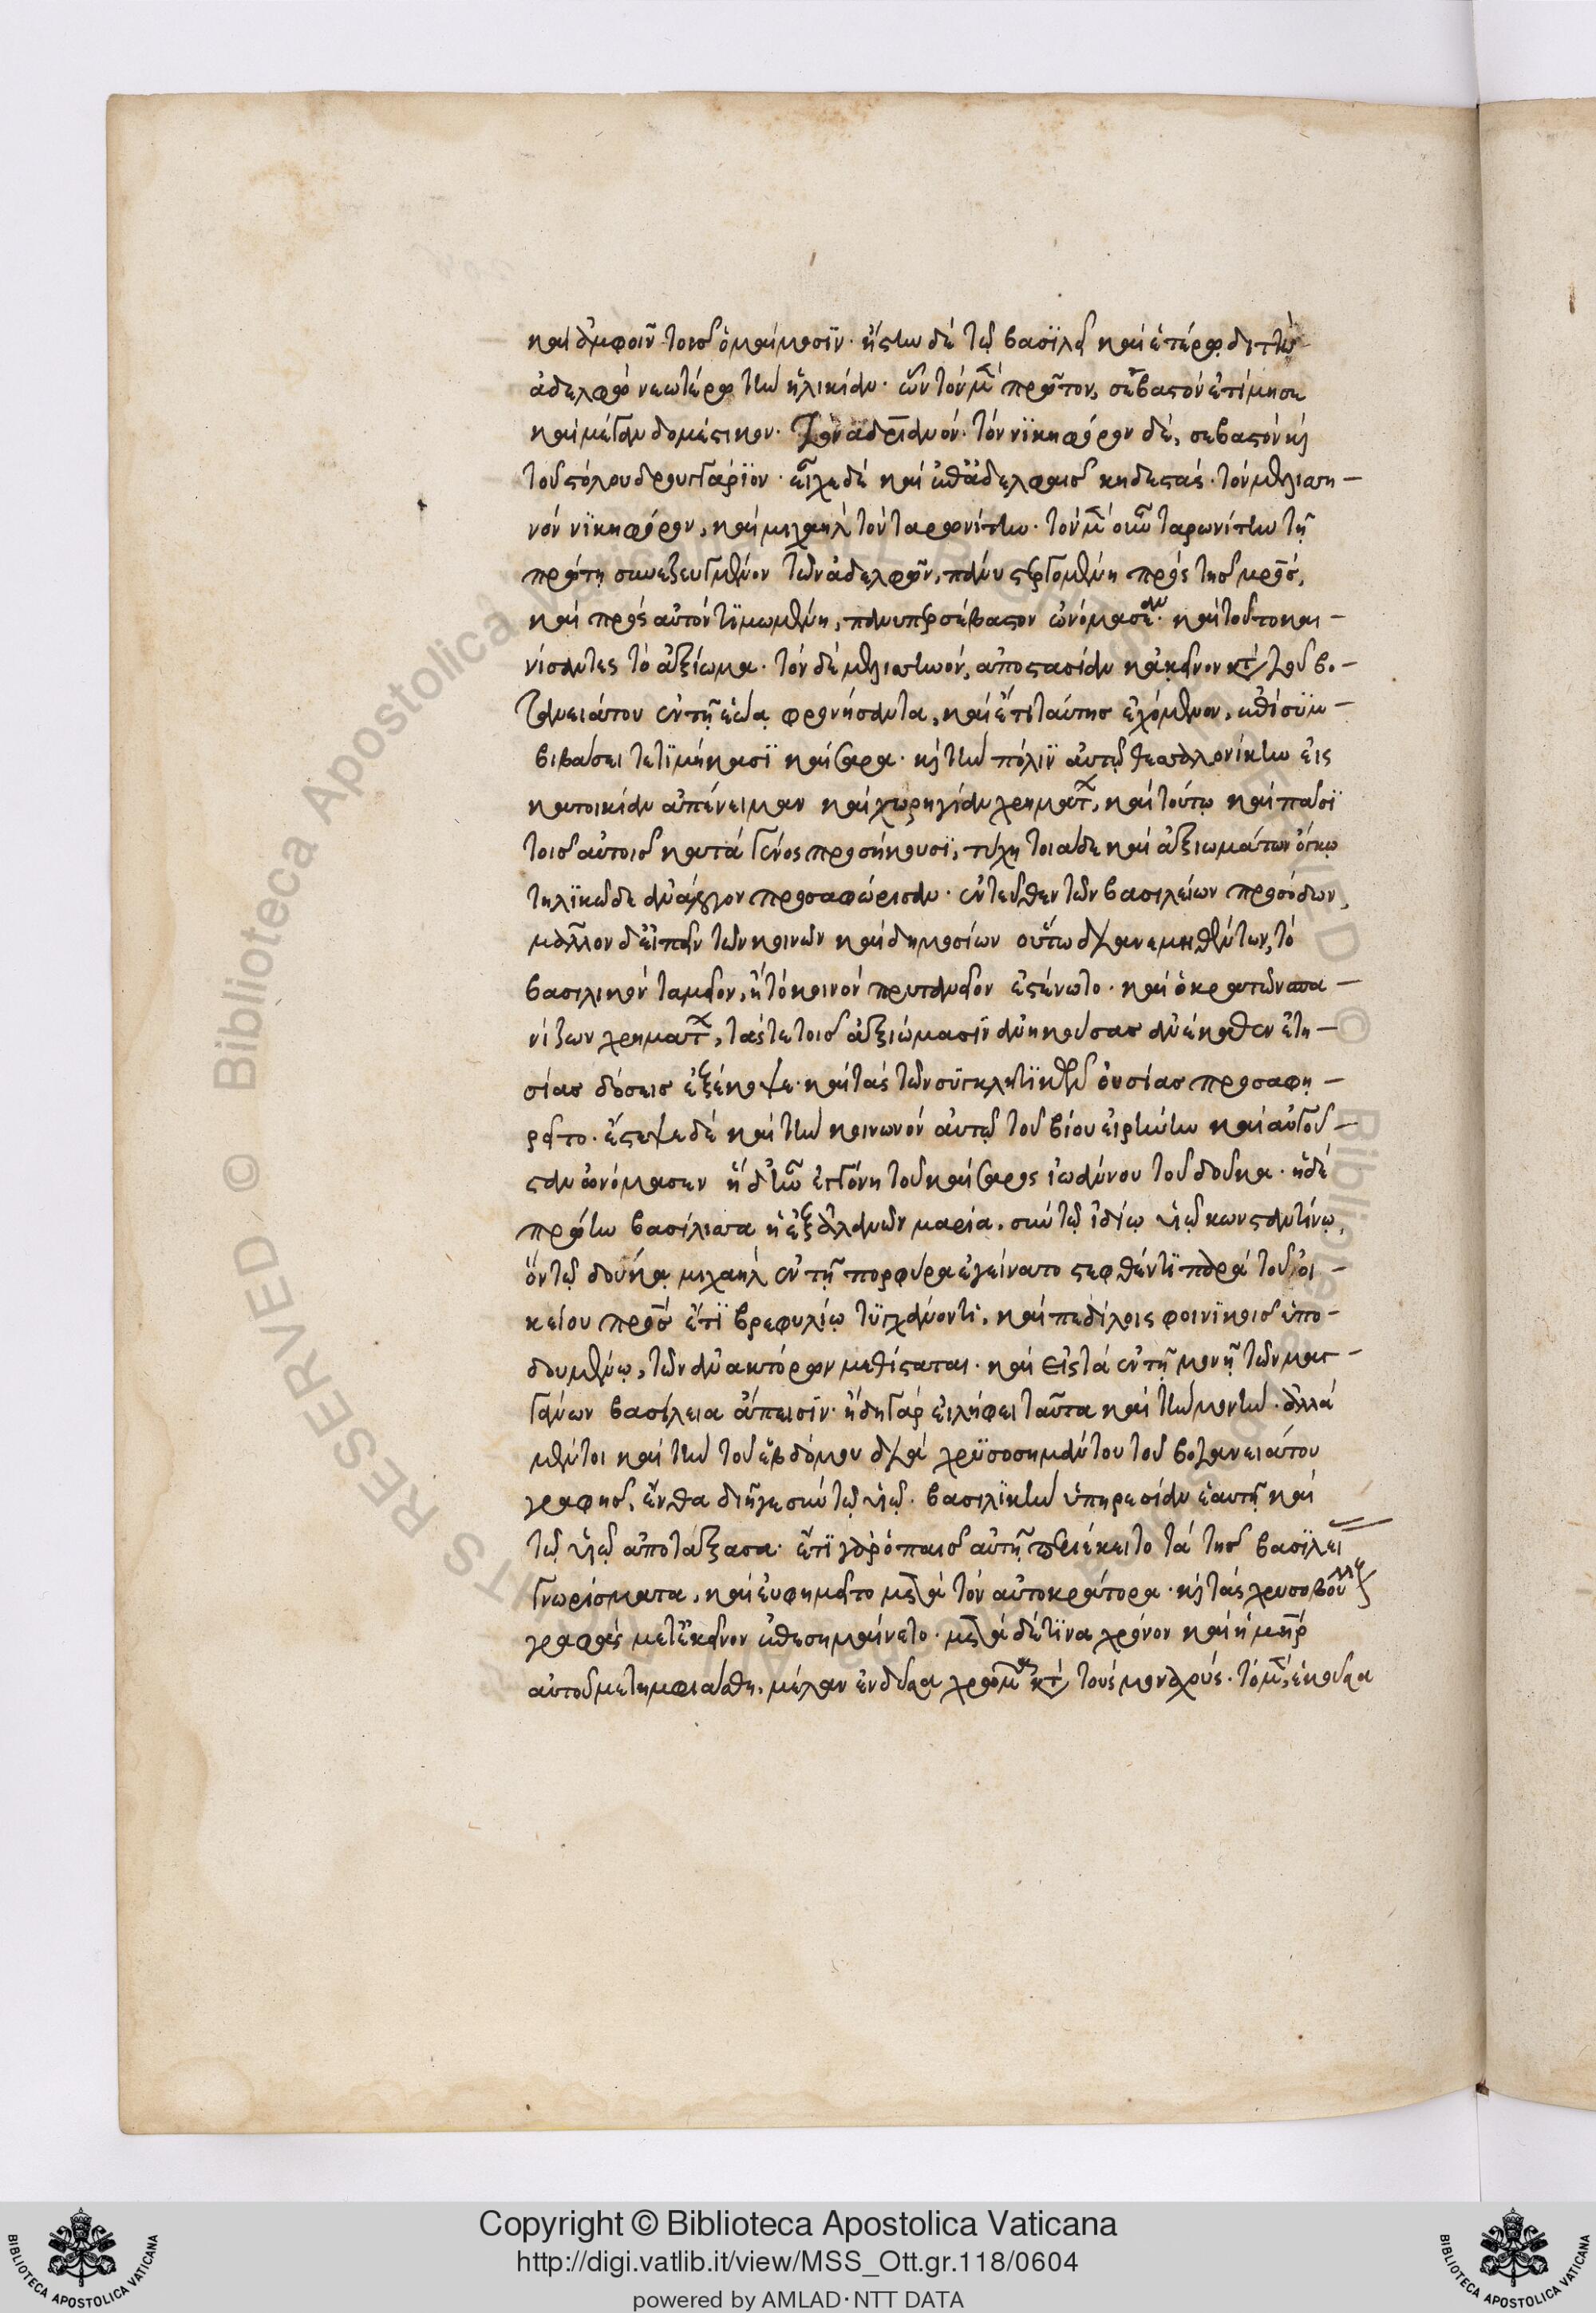 καὶ ἀμφοῖν τοῖς ὁμαίμοσϊν· ἤστην δὲ τῷ βασϊλεῖ καὶ ἑτέρω διττὼ
ἀδελφὼ νεωτέρω τὴν ἡλικίαν· ὧν τὸν μ̀ πρῶτον, σεβαστὸν ἐτίμησε
καὶ μέγαν δομέστικον. τὸν ἀδριανόν· τὸν νϊκηφόρον δὲ, σεβαστὸν κὶ
τοῦ στόλου δρουγγάρϊον· εἶχε δὲ καὶ ἐπ' ἀδελφαῖς κηδεστάς· τὸν μελισση–
νὸν νϊκηφόρον, καὶ μιχαὴλ τὸν ταρωνίτην· τὸν μ̀ οὖν ταρωνίτην τῇ
πρώτῃ συνεζευγμένον τῶν ἀδελφῶν, πάνυ στεργομένῃ πρὸς τῆς μρ̅ς,
καὶ πρὸς αὐτῶν τϊμωμένῃ, πανυπερσέβαστον ὠνόμασαν· καὶ τοῦτο και–
νίσαντες τὸ ἀξίωμα· τὸν δὲ μελισσηνὸν, ἀποστασίαν κἀκεῖνον κτ̀ τοῦ βο–
τανειάτου ἐν τῇ ἑώᾳ φρονήσαντα, καὶ ἔτι ταύτης ἐχόμενον, ἐπὶ συμ–
βιβάσει τετϊμήκασϊ καίσαρα· κὶ τὴν πόλϊν αὐτῷ θεσσαλονίκην εἰς
κατοικίαν ἀπένειμαν καὶ χορηγίαν χρημάτ, καὶ τούτῳ καὶ πᾶσϊ
τοῖς αὐτοῖς κατὰ γένος προσήκουσϊ, τύχῃ τοιᾷδε καὶ ἀξιωμάτων ὄγκῳ
τηλϊκῶδε ἀνάλογον προσαφώρισαν· ἐντεῦθεν τῶν βασιλείων προσόδων,
μᾶλλον δ' εἰπεῖν τῶν κοινῶν καὶ δημοσίων οὕτω διανεμηθέντων, τὸ
βασιλικὸν ταμεῖον, ἢ τὸ κοινὸν πρυτανεῖον ἐστένωτο· καὶ ὁ κρατῶν σπα–
νίζων χρημάτ, τάς τε τοῖς ἀξιώμασϊν ἀνηκούσας ἀνέκαθεν ἐτη–
σίας δόσεις ἐξέκοψε· καὶ τὰς τῶν συγκλητϊκῶν οὐσίας προσαφῃ–
ρεῖτο. ἔστεψε δὲ καὶ τὴν κοινωνὸν αὐτῷ τοῦ βίου εἰρήνην καὶ αὐγοῦ–
σταν ὠνόμασεν ἣ δ' ἦν ἐγγόνη τοῦ καίσαρος ἰωάννου τοῦ δούκα· ἡ δὲ
πρώην βασίλισσα ἡ ἐξ ἀλανῶν μαρία. σὺν τῷ ἰδίῳ ὑιῷ κωνσταντίνῳ,
ὃν τῷ δούκᾳ μιχαὴλ ἐν τῇ πορφύρᾳ ἐγείνατο στεφθέντϊ παρὰ τοῦ οἰ–
κείου πρ̅ς ἔτϊ βρεφυλίῳ τϋγχάνοντϊ, καὶ πεδίλοις φοινϊκοῖς ὑπο–
δουμένῳ, τῶν ἀνακτόρων μεθίσταται· καὶ εἰς τὰ ἐν τῇ μονῇ τῶν μαγ–
γάνων βασίλεια ἄπεισϊν· ἤδη γὰρ εἰλήφει ταῦτα καὶ τὴν μονὴν· ἀλλὰ
μέντοι καὶ τὴν τοῦ ἑβδόμου διὰ χρυσοσημάντου τοῦ βοτανειάτου
γραφῆς, ἔνθα διῆγε σὺν τῷ ὑιῷ. βασιλϊκὴν ὑπηρεσίαν ἑαυτῇ καὶ
τῷ ὑιῷ ἀποτάξασα· ἔτϊ γὰρ ὁ παῖς αὐτῇ περιέκειτο τὰ τῆς βασϊλεί
γνωρίσματα, καὶ εὐφημεῖτο μετὰ τὸν αὐτοκράτορα· κὶ τὰς χρυσοβούλλ
γραφὰς μετ' ἐκεῖνον ἐπεσημαίνετο· μετὰ δέ τϊνα χρόνον καὶ ἡ μη̅ρ
αὐτοῦ μετημφιάσθη, μέλαν ἔνδυμα χρωμ κτ̀ τοὺς μοναχούς· τὸ μ̀, ἑκοῦσα